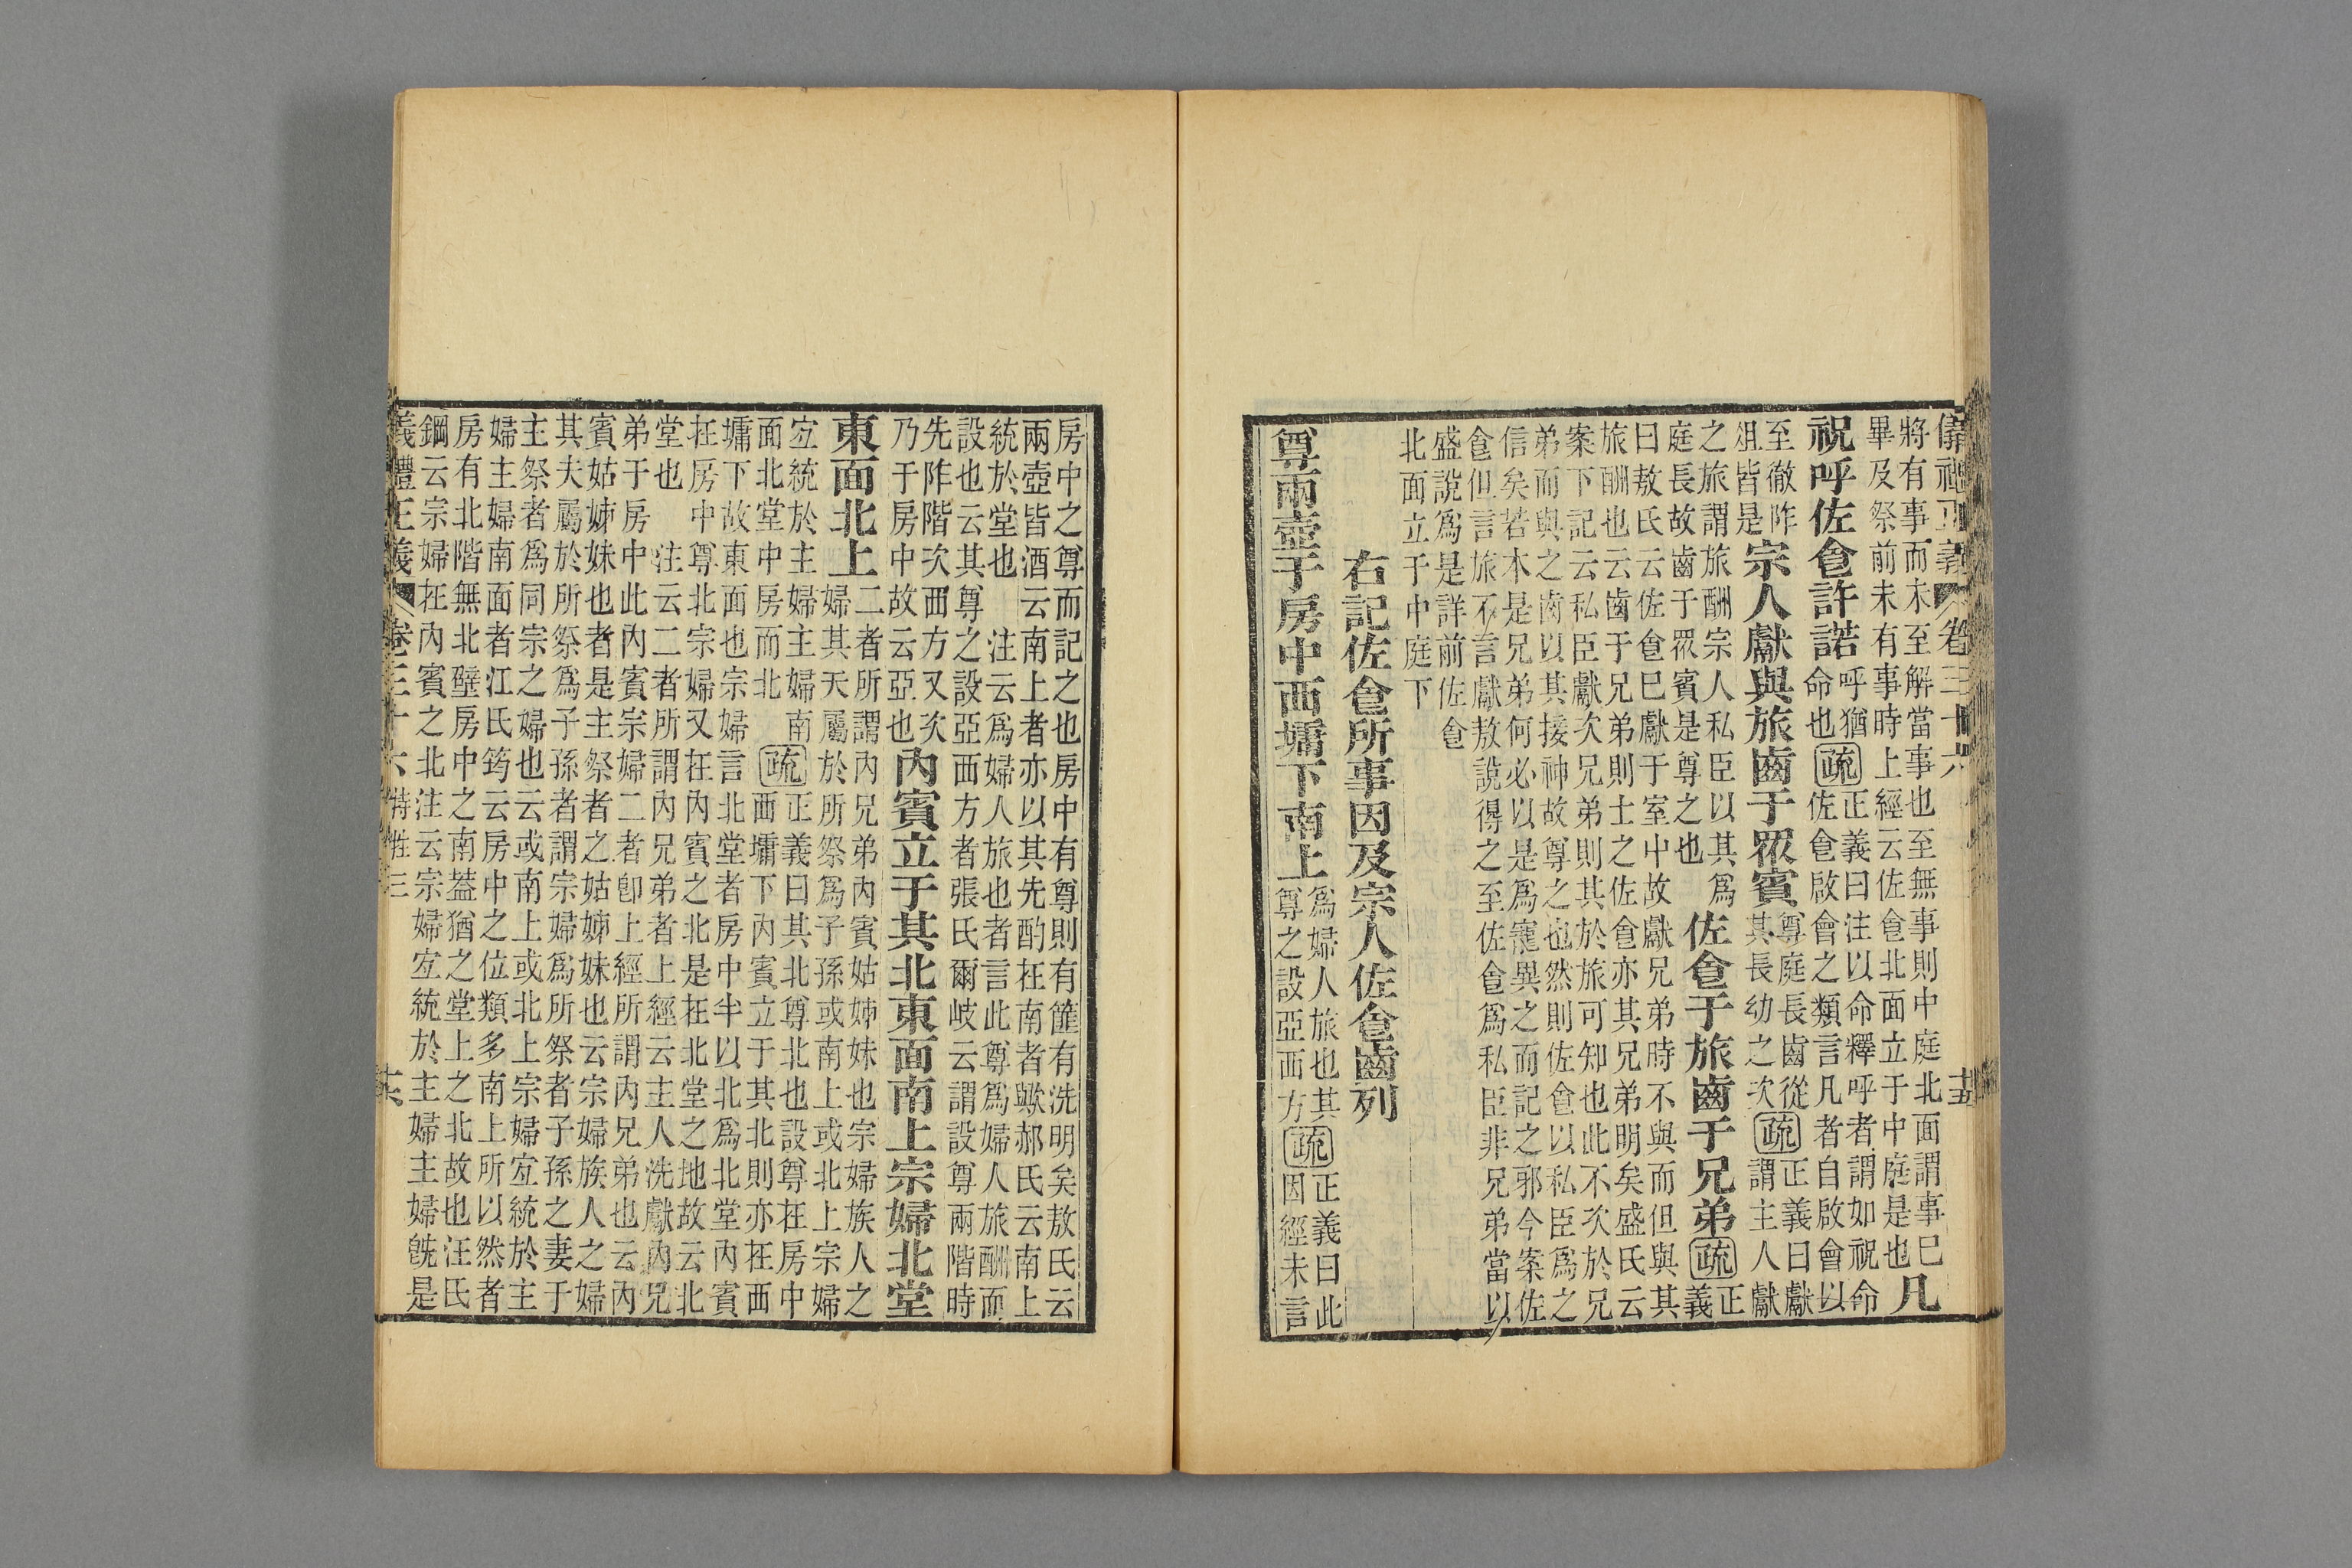 儀禮正義 卷三十六 十五
將有事而未至解當事也至無事則中庭北面謂事巳
畢及祭前未有事時上經云佐㑹北面立于中庭是也凡
祝呼佐㑹許諾呼猶
命也疏正義曰注以命釋呼者謂如祝命
佐㑹啟會之類言凡者自啟會以
至徹阼
俎皆是宗人獻與旅齒于眾賓尊庭長齒從
其長幼之次疏正義曰獻
謂主人獻
之旅謂旅酬宗人私臣以其爲
庭長故齒于眾賓是尊之也佐㑹于旅齒于兄弟疏正
義
曰敖氏云佐㑹巳獻于室中故獻兄弟時不與而但與其
旅酬也云齒于兄弟則士之佐㑹亦其兄弟明矣盛氏云
案下記云私臣獻次兄弟則其於旅可知也此不次於兄
弟而與之齒以其接神故尊之也然則佐㑹以私臣爲之
信矣若本是兄弟何必以是爲寵異之而記之邪今案佐
㑹但言旅不言獻敖說得之至佐㑹爲私臣非兄弟當以
盛說爲是詳前佐㑹
北面立于中庭下
右記佐㑹所事因及宗人佐㑹齒列
尊兩壺于房中西墉下南上爲婦人旅也其
尊之設亞西方疏正義曰此
因經未言
房中之尊而記之也房中有尊則有篚有洗明矣敖氏云
兩壺皆酒云南上者亦以其先酌在南者歟郝氏云南上
統於堂也 注云爲婦人旅也者言此尊爲婦人旅酬而
設也云其尊之設亞西方者張氏爾岐云謂設尊兩階時
先阼階次西方又次
乃于房中故云亞也內賓立于其北東面南上宗婦北堂
東面北上二者所謂內兄弟內賓姑姊妹也宗婦族人之
婦其夫屬於所祭爲子孫或南上或北上宗婦
宜統於主婦主婦南
面北堂中房而北疏正義曰其北尊北也設尊在房中
西墉下內賓立于其北則亦在西
墉下故東面也宗婦言北堂者房中半以北爲北堂內賓
在房中尊北宗婦又在內賓之北是在北堂之地故云北
堂也 注云二者所謂內兄弟者上經云主人洗獻內兄
弟于房中此內賓宗婦二者卽上經所謂內兄弟也云內
賓姑姊妹也者是主祭者之姑姊妹也云宗婦族人之婦
其夫屬於所祭爲子孫者謂宗婦爲所祭者子孫之妻于
主祭者爲同宗之婦也云或南上或北上宗婦宜統於主
婦主婦南面者江氏筠云房中之位類多南上所以然者
房有北階無北壁房中之南葢猶之堂上之北故也汪氏
鋼云宗婦在內賓之北注云宗婦宜統於主婦主婦旣是
義禮正義 卷三十六 特牲三